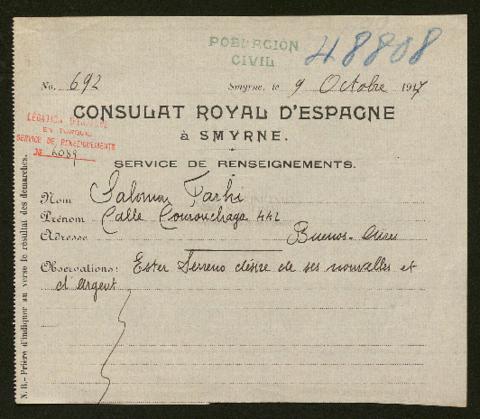 POBLACION
CIVIL
48808
No. 692
Smyrne, le 9 Octobre 1917
CONSULAT ROYAL D'ESPAGNE
à SMYRNE.
LÉGATION D'ESPAGNE
EN TURQUIE
SERVICE DE RENSEIGNEMENTS
No 6089
SERVICE DE RENSEIGNEMENTS.
Nom Salomon Farhi
Prénom Calle 442
Adresse Buenos-Aires
Observations: Ester désire de ses nouvelles et
d'argent
N. B.- Prière d'indiquer au verso le résultat des démarches.